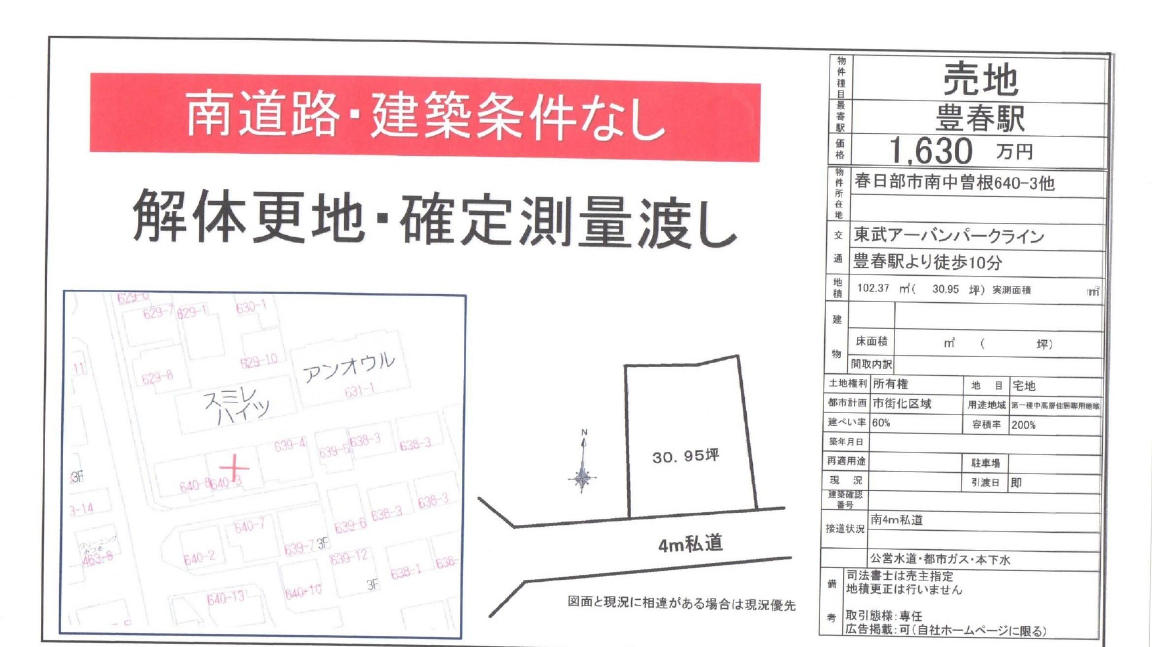 南道路・建築条件なし
解体更地・確定測量渡し
629-7
629-1
630-1
629-10
629-8
アンオウル
631-1
スミレ
ハイツ
639-4
638-3
638-3
640-3
640-7
640-2
639-6
638-3
638-3
639-7
3F
639-12
638-1
3F
640-10
640-13
3F
N
30.95坪
4m私道
図面と現況に相違がある場合は現況優先
物件種目 売地
最寄駅 豊春駅
価格 1,630 万円
物件所在地 春日部市南中曽根640-3他
交通 東武アーバンパークライン
豊春駅より徒歩10分
地積 102.37 ㎡( 30.95 坪) 実測面積 ㎡
建物
床面積 ㎡ ( 坪)
間取内訳
土地権利 所有権 地目 宅地
都市計画 市街化区域 用途地域 第一種中高層住居専用地域
建ぺい率 60% 容積率 200%
築年月日
再適用途 駐車場
現況 引渡日 即
建築確認番号
接道状況 南4m私道
公営水道・都市ガス・本下水
備考 司法書士は売主指定
地積更正は行いません
取引態様:専任
広告掲載:可(自社ホームページに限る)